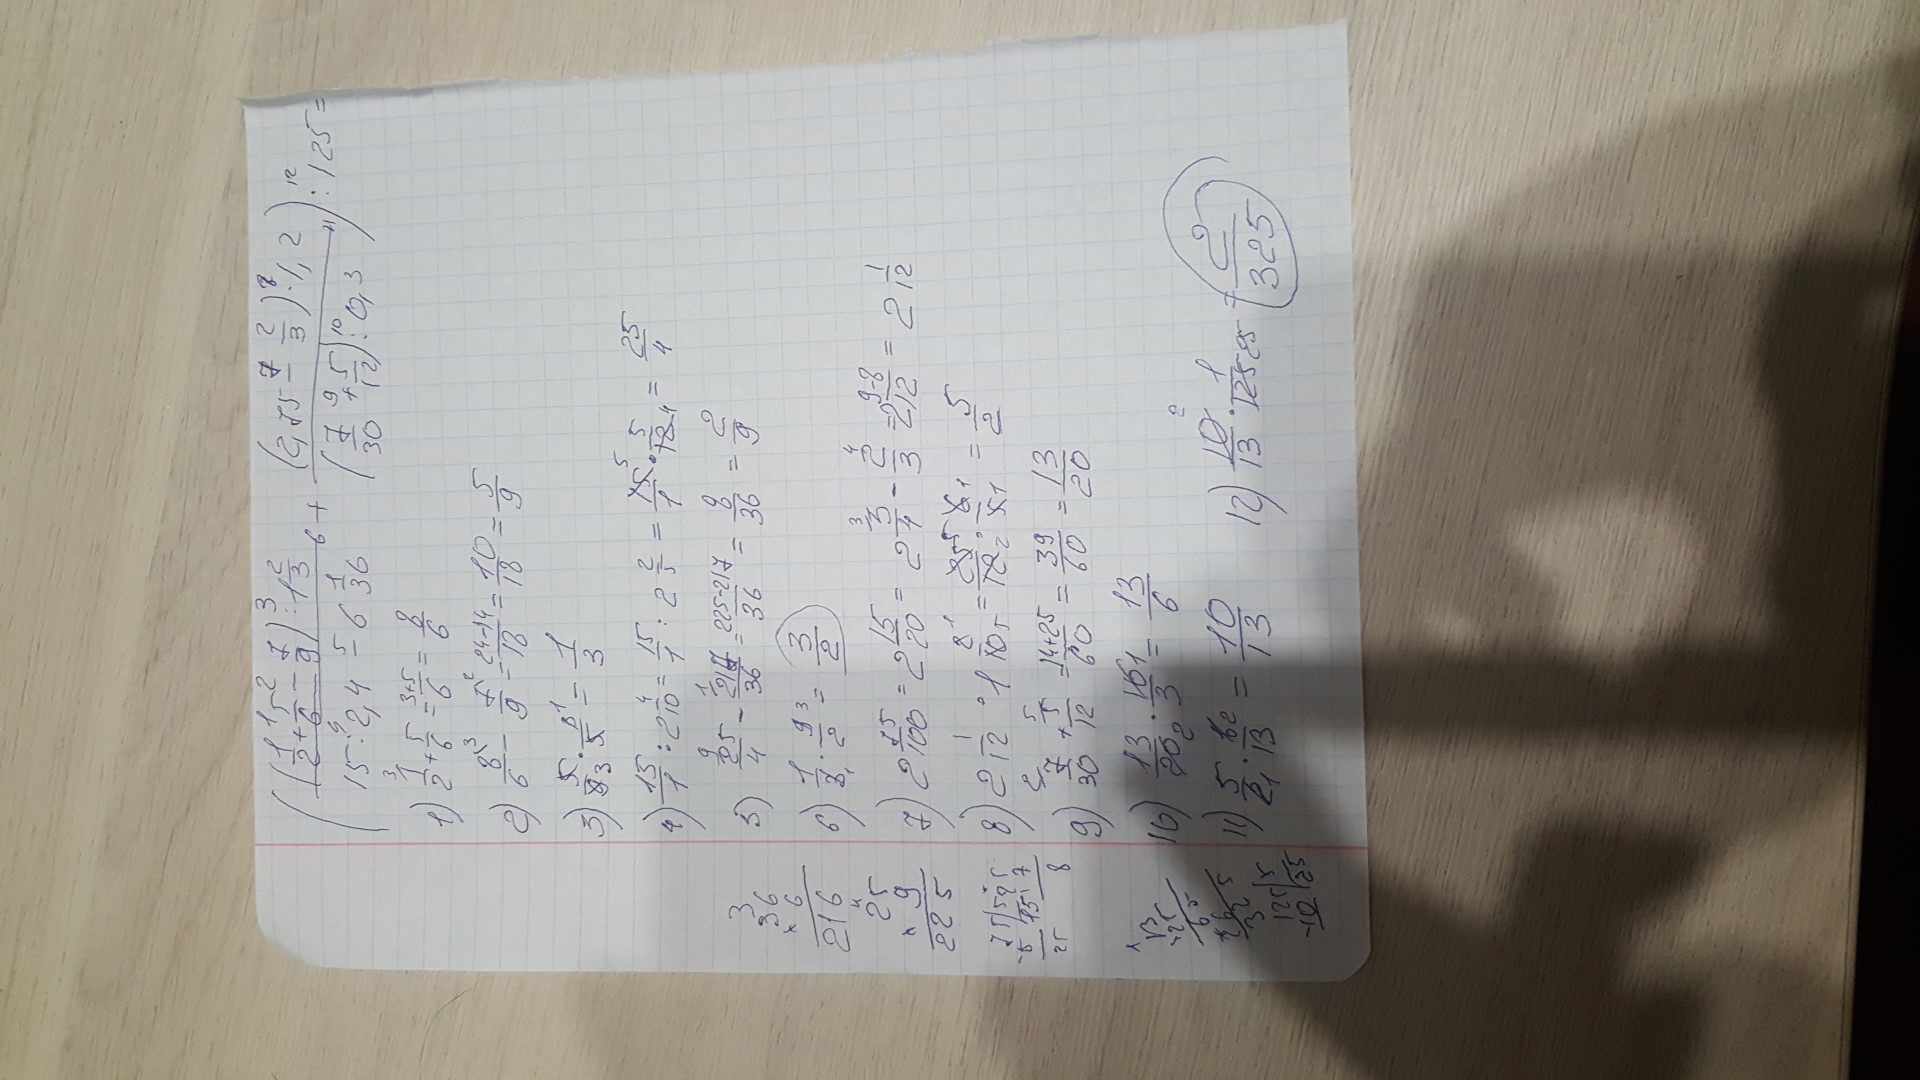 ( (1/2 + 5/6 - 7/9) : 1 2/3 / 15 : 2,4 - 6 1/36 + (2,75 - 2/3) · 1,2 / (7/30 + 5/12) : 0,3 ) : 125 =
1) 1/2 + 5/6 = 3+5/6 = 8/6
2) 8/6 - 7/9 = 24-14/18 = 10/18 = 5/9
3) 5/9 · 3/5 = 1/3
4) 15/1 : 2 4/10 = 15/1 : 2 2/5 = 15/1 · 5/12 = 25/4
5) 25/4 - 217/36 = 225-217/36 = 8/36 = 2/9
6) 1/3 · 9/2 = 3/2
7) 2 75/100 = 2 15/20 = 2 3/4 - 2/3 = 2 9-8/12 = 2 1/12
8) 2 1/12 · 1 2/10 = 25/12 · 6/5 = 5/2
9) 7/30 + 5/12 = 14+25/60 = 39/60 = 13/20
10) 13/20 · 10/3 = 13/6
11) 5/2 · 6/13 = 10/13... 
12) 10/13 · 1/125 = 2/325
36
× 6
216
25
× 9
225